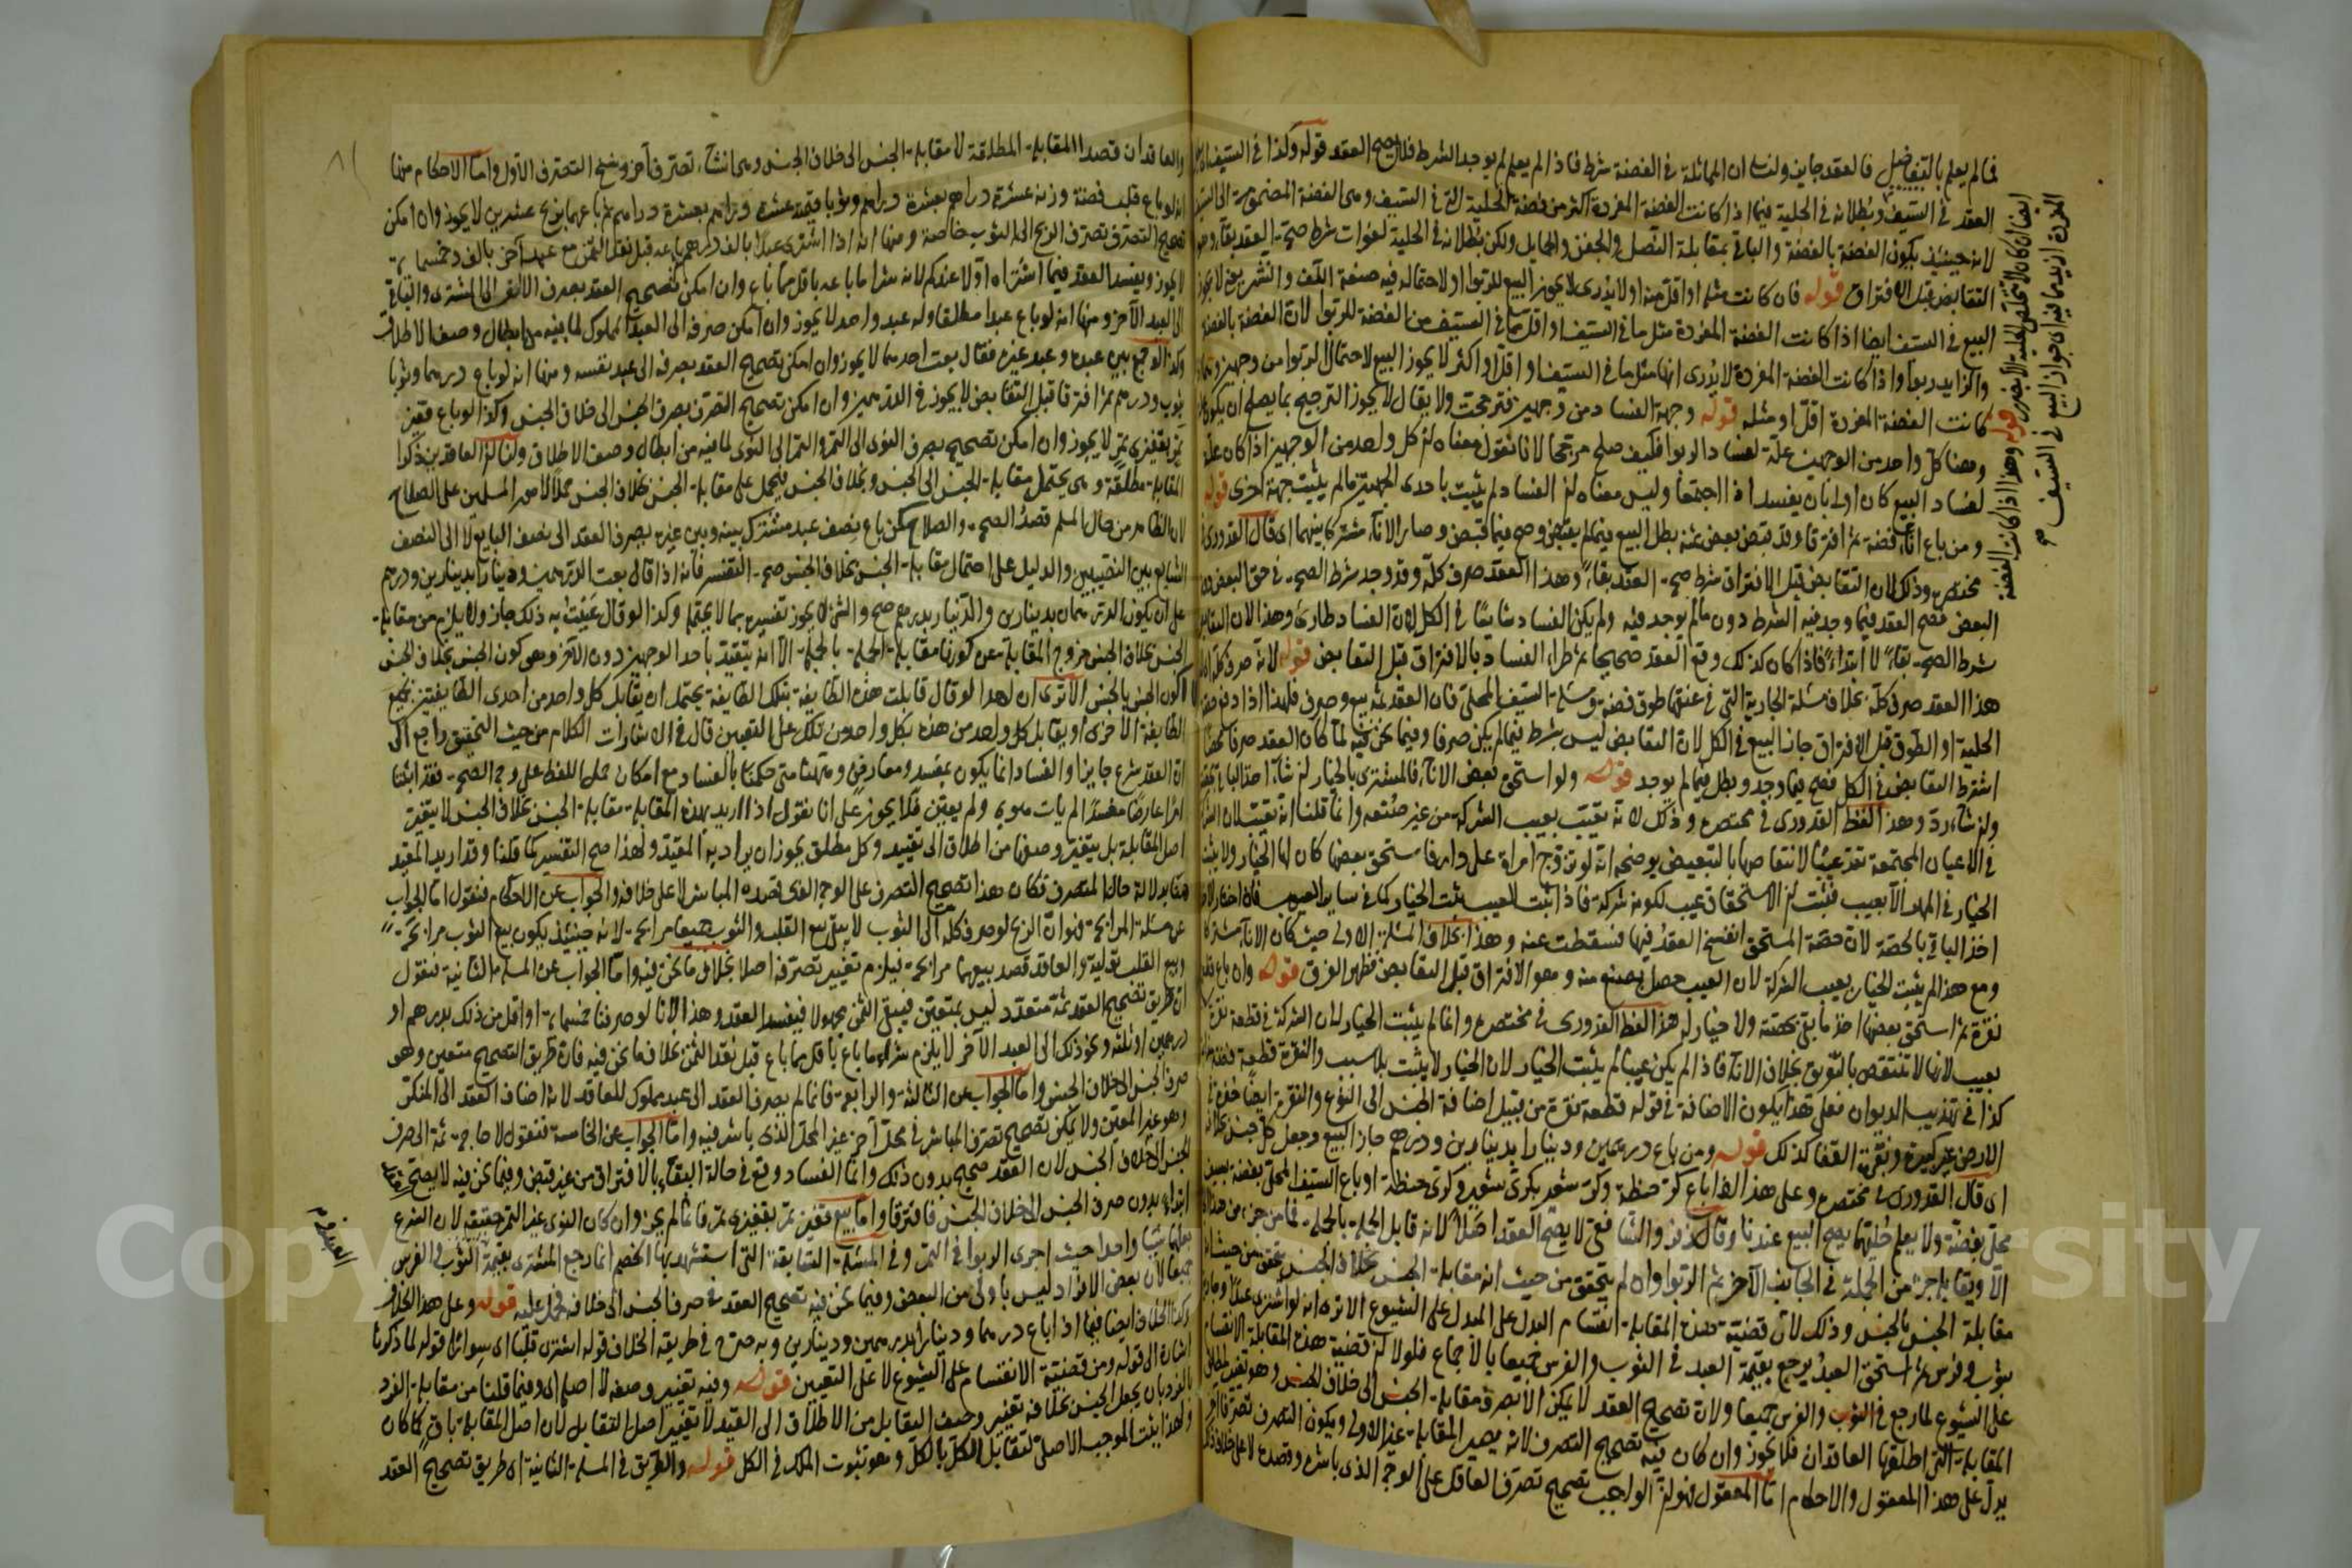 فما لم يعلم بالتفاضل فالعقد جايز ولنا ان المماثلة في الفضة شرط فاذا لم يعلم لم يوجد الشرط فلا يصح العقد قوله وكذا في السيف
العقد في السيف وبطلانه في الحلية فيما اذا كانت الفضة المفردة اكثر من فضة الحلية التي في السيف وهي الفضة المضمومة الى السيف
لانه حينئذ يكون الفضة بالفضة والباقي بمقابلة النصل والجفن والحمايل ولكن بطلانه في الحلية لفوات شرط صحة العقد بقاء وهو
التقابض قبل الافتراق قوله فان كانت مثله او اقل منه او لا يدرى لا يجوز البيع للربوا او لاحتماله فيه
البيع في السيف ايضا اذا كانت الفضة المفردة مثل ما في السيف او اقل مما في السيف من الفضة للربوا لان الفضة بالفضة
واذا كانت الفضة المفردة لا يدرى انها مثل ما في السيف او اقل او اكثر لا يجوز البيع لاحتمال الربوا من وجهين
كانت الفضة المفردة اقل او مثله قوله وجهة الفساد من وجهين فترجحت ولا يقال لا يجوز الترجيح بما يصلح ان يكون
وههنا كل واحد من الوجهين علة لفساد الربوا فكيف صلح مرجحا لانا نقول معناه ان كل واحد من الوجهين اذا كان علة
لفساد البيع كان اولى بان يفسد اذا اجتمعا وليس معناه ان الفساد لم يثبت باحدى الجهتين ما لم يثبت جهة اخرى قوله
ومن باع اناء فضة ثم افترقا وقد قبض بعض ثمنه بطل البيع فيما لم يقبض وصح فيما قبض وصار الاناء مشتركا بينهما اى قال القدورى
مختصره وذلك لان التقابض قبل الافتراق شرط صحة العقد بقاء وهذا العقد صرف كله وقد وجد شرط الصحة في حق البعض دون
البعض فصح العقد فيما وجد فيه الشرط دون ما لم يوجد فيه ولم يكن الفساد شايعا في الكل لان الفساد طارئ وهذا لان التقابض
شرط الصحة بقاء لا ابتداء فاذا كان كذلك وقع العقد صحيحا ثم طراء الفساد بالافتراق قبل التقابض قوله لانه صرف كله
هذا العقد صرف كله بخلاف مسئلة الجارية التي في عنقها طوق فضة ومسئلة السيف المحلى فان العقد ثمه بيع وصرف فلهذا اذا
الحلية او الطوق قبل الافتراق جاز البيع في الكل لان التقابض ليس بشرط فيما لم يكن صرفا وفيما نحن فيه لما كان العقد صرفا
اشترط التقابض في الكل فصح فيما وجد وبطل فيما لم يوجد قوله ولو استحق بعض الاناء فالمشترى بالخيار ان شاء اخذ الباقي
وان شاء رد وهذا لفظ القدورى في مختصره وذلك لانه تعيب بعيب الشركة من غير صنعه وانما قلنا انه تعيب لان الشركة
في الاعيان المجتمعة تعد عيبا لانتقاصها بالتبعيض يوضحه انه لو تزوج امراة على دار فاستحق بعضها كان لها الخيار ولا يثبت
الخيار في المهر الا بعيب فثبت ان الاستحقاق عيب لكونه شركة فاذا ثبت العيب يثبت الخيار كما في ساير العيوب
اخذ الباقي بالحصة لان حصة المستحق انفسخ العقد فيها فسقطت عنه وهذا بخلاف المسئلة الاولى حيث كان الاناء مشتركا
ومع هذا لم يثبت الخيار بعيب الشركة لان العيب حصل بصنع منه وهو الافتراق قبل التقابض فظهر الفرق قوله وان باع
نقرة ثم استحق بعضها اخذ ما بقي بحصته ولا خيار له هذا لفظ القدورى في مختصره وانما لم يثبت الخيار لان الشركة في قطعة نقرة
بعيب لانها لا تنتقص بالتفريق بخلاف الاناء فاذا لم يكن عيبا لم يثبت الخيار لان الخيار لا يثبت بلا سبب والنقرة قطعة فضة
كذا في تهذيب الديوان فعلى هذا يكون الاضافة في قوله قطعة نقرة من قبيل اضافة الجنس الى النوع
قوله ومن باع درهمين ودينارا بدينارين ودرهم جاز البيع وجعل كل جنس
اى قال القدورى في مختصره وعلى هذا اذا باع كر حنطة وكر شعير بكرى شعير وكرى حنطة او باع السيف المحلى بفضة بسيف
محلى بفضة ولا يعلم حليتهما يصح البيع عندنا وقال زفر والشافعى لا يصح العقد اصلا لانه قابل الجملة بالجملة فما من جزء من هذا
الا ويقابله جزء من الجملة في الجانب الآخر
مقابلة الجنس بالجنس وذلك لان قضية هذه المقابلة انقسام البدل على المبدل على الشيوع الا ترى انه لو اشترى عبدا
بثوب وفرس ثم استحق العبد يرجع بقيمة العبد في الثوب والفرس جميعا بالاجماع فلولا ان قضية هذه المقابلة الانقسام
على الشيوع لما رجع في الثوب والفرس جميعا ولان تصحيح العقد لا يمكن الا بصرف مقابلة الجنس الى خلاف الجنس وهو تغيير
المقابلة التي اطلقها العاقدان فلا يجوز وان كان فيه تصحيح التصرف لانه يصير المقابلة غير الاولى ويكون التصرف تصرفا آخر
يدل على هذا المعقول والاحكام اما المعقول فهو ان الواجب تصحيح تصرف العاقل على الوجه الذى باشره وقصده لا على خلاف ذلك
والعاقدان قصدا المقابلة المطلقة لا مقابلة الجنس الى خلاف الجنس وهي انشاء تصرف آخر وفسخ التصرف الاول واما الاحكام منها
انه لو باع قلب فضة وزنه عشرة دراهم بعشرة دراهم وثوبا قيمته عشرة دراهم بعشرة دراهم ثم باعهما مرابحة بربح عشرين لا يجوز وان امكن
تصحيح التصرف بصرف الربح الى الثوب خاصة ومنها انه اذا اشترى عبدا بالف درهم ثم باعه قبل نقد الثمن مع عبد آخر بالف وخمسماية
لا يجوز ويفسد العقد فيما اشتراه اولا عندكم لانه شراء ما باعه باقل مما باع وان امكن تصحيح العقد بصرف الالف الى المشترى والباقي
الى العبد الآخر ومنها انه لو باع عبدا مطلقا وله عبد واحد لا يجوز وان امكن صرفه الى العبد المملوك لما فيه من ابطال وصف الاطلاق
وكذا لو جمع بين عبده وعبد غيره فقال بعت احدهما لا يجوز وان امكن تصحيح العقد بصرفه الى عبد نفسه ومنها انه لو باع درهما وثوبا
بثوب ودرهم ثم افترقا قبل التقابض لا يجوز في الدرهمين وان امكن تصحيح التصرف بصرف الجنس الى خلاف الجنس وكذا لو باع قفيز
تمر بقفيزى تمر لا يجوز وان امكن تصحيحه بصرف النوى الى التمر والتمر الى النوى لما فيه من ابطال وصف الاطلاق ولنا ان العاقدين ذكرا
المقابلة مطلقة وهي يحتمل مقابلة الجنس الى الجنس وبخلاف الجنس فيحمل على مقابلة الجنس بخلاف الجنس حملا لامور المسلمين على الصلاح
لان الظاهر من حال المسلم قصد الصحة والصلاح كمن باع نصف عبد مشترك بينه وبين غيره يصرف العقد الى نصف البايع لا الى النصف
الشايع بين النصيبين والدليل على احتمال مقابلة الجنس بخلاف الجنس صحة التفسير فانه اذا قال بعت الدرهمين ودينارا بدينارين ودرهم
على ان يكون الدرهمان بدينارين والدينار بدرهم صح والشئ لا يجوز تفسيره بما لا يحتمله وكذا لو قال عنيت به ذلك جاز ولا يلزم من مقابلة
الجنس بخلاف الجنس خروج المقابلة عن كونها مقابلة الجملة بالجملة الا انه يتقيد باحد الوجهين دون الآخر وهو كون الجنس بخلاف الجنس
لا كون الجنس بالجنس الا ترى ان احدا لو قال قابلت هذه الطايفة بتلك الطايفة يحتمل ان يقابل كل واحد من احدى الطايفتين بجميع
الطايفة الاخرى او يقابل كل واحد من هذه بكل واحد من تلك على التعيين قال في الاشارات الكلام من حيث التحقيق راجع الى
ان العقد شرع جايزا والفساد انما يكون بمفسد ومعارض ومتى حكمنا بالفساد مع امكان حمل اللفظ على وجه الصحة فقد اثبتنا
امرا عارضا مفسدا
اصل المقابلة بل يتغير وصفها من اطلاق الى تقييد وكل مطلق يجوز ان يراد به المقيد ولهذا صح التفسير كما قلنا وقد اريد المقيد
هنا بدلالة حال المتصرف فكان هذا تصحيح التصرف على الوجه الذى قصده المباشر لا على خلافه والجواب عن الاحكام فنقول اما الجواب
عن مسئلة المرابحة فهو ان الربح لو صرف كله الى الثوب لا يبقى بيع القلب والثوب جميعا مرابحة لانه حينئذ يكون بيع الثوب مرابحة
وبيع القلب تولية والعاقد قصد بيعهما مرابحة فيلزم تغيير تصرفه اصلا بخلاف ما نحن فيه واما الجواب عن المسئلة الثانية فنقول
ان طريق تصحيح العقد ثمة متعدد ليس بمتعين فيبقى الثمن مجهولا فيفسد العقد وهذا لانا لو صرفنا خمسماية او اقل من ذلك بدرهم او
درهمين او ثلثة ونحو ذلك الى العبد الآخر لا يلزم شراء ما باع باقل مما باع قبل نقد الثمن بخلاف ما نحن فيه فان طريق التصحيح متعين وهو
صرف الجنس الى خلاف الجنس واما الجواب عن الثالثة والرابعة فانما لم يصرف العقد الى عبد مملوك للعاقد لانه اضاف العقد الى المنكر
وهو غير المعين ولا يمكن تصحيح تصرف المباشر في محل آخر غير المحل الذى باشر فيه واما الجواب عن الخامسة فنقول لا حاجة ثمة الى صرف
الجنس الى خلاف الجنس لان العقد صحيح بدون ذلك وانما الفساد وقع في حالة البقاء بالافتراق من غير قبض وفيما نحن فيه لا يصح
ابتداء بدون صرف الجنس الى خلاف الجنس فافترقا واما بيع قفيز تمر بقفيزى تمر فانما لم يجز وان كان النوى غير التمر حقيقة لان الشرع
جعلهما شيا واحدا حيث اجرى الربوا في التمر وفي المسئلة السابقة التي استشهد بها الخصم انما رجع المشترى بقيمة الثوب والفرس
جميعا لان بعض الافراد ليس باولى من البعض وفيما نحن فيه تصحيح العقد في صرف الجنس الى خلافه فحمل عليه قوله وعلى هذا الخلاف
وكذا الخلاف ايضا فيما اذا باع درهما ودينارا بدرهمين ودينارين وبه صرح في طريقة الخلاف قوله اشترى قلبا اى سوارا قوله لما ذكرنا
اشارة الى قوله ومن قضيته الانقسام على الشيوع لا على التعيين قوله وفيه تغيير وصفه لا اصله اى وفيما قلنا من مقابلة الفرد
بالفرد بان يجعل الجنس بخلافه تغيير وصف التقابل من الاطلاق الى القيد لا تغيير اصل التقابل لان اصل المقابلة باق كما كان
ولهذا يثبت الموجب الاصلى لتقابل الكل بالكل وهو ثبوت الملك في الكل قوله والطريق في المسئلة الثانية اى طريق تصحيح العقد